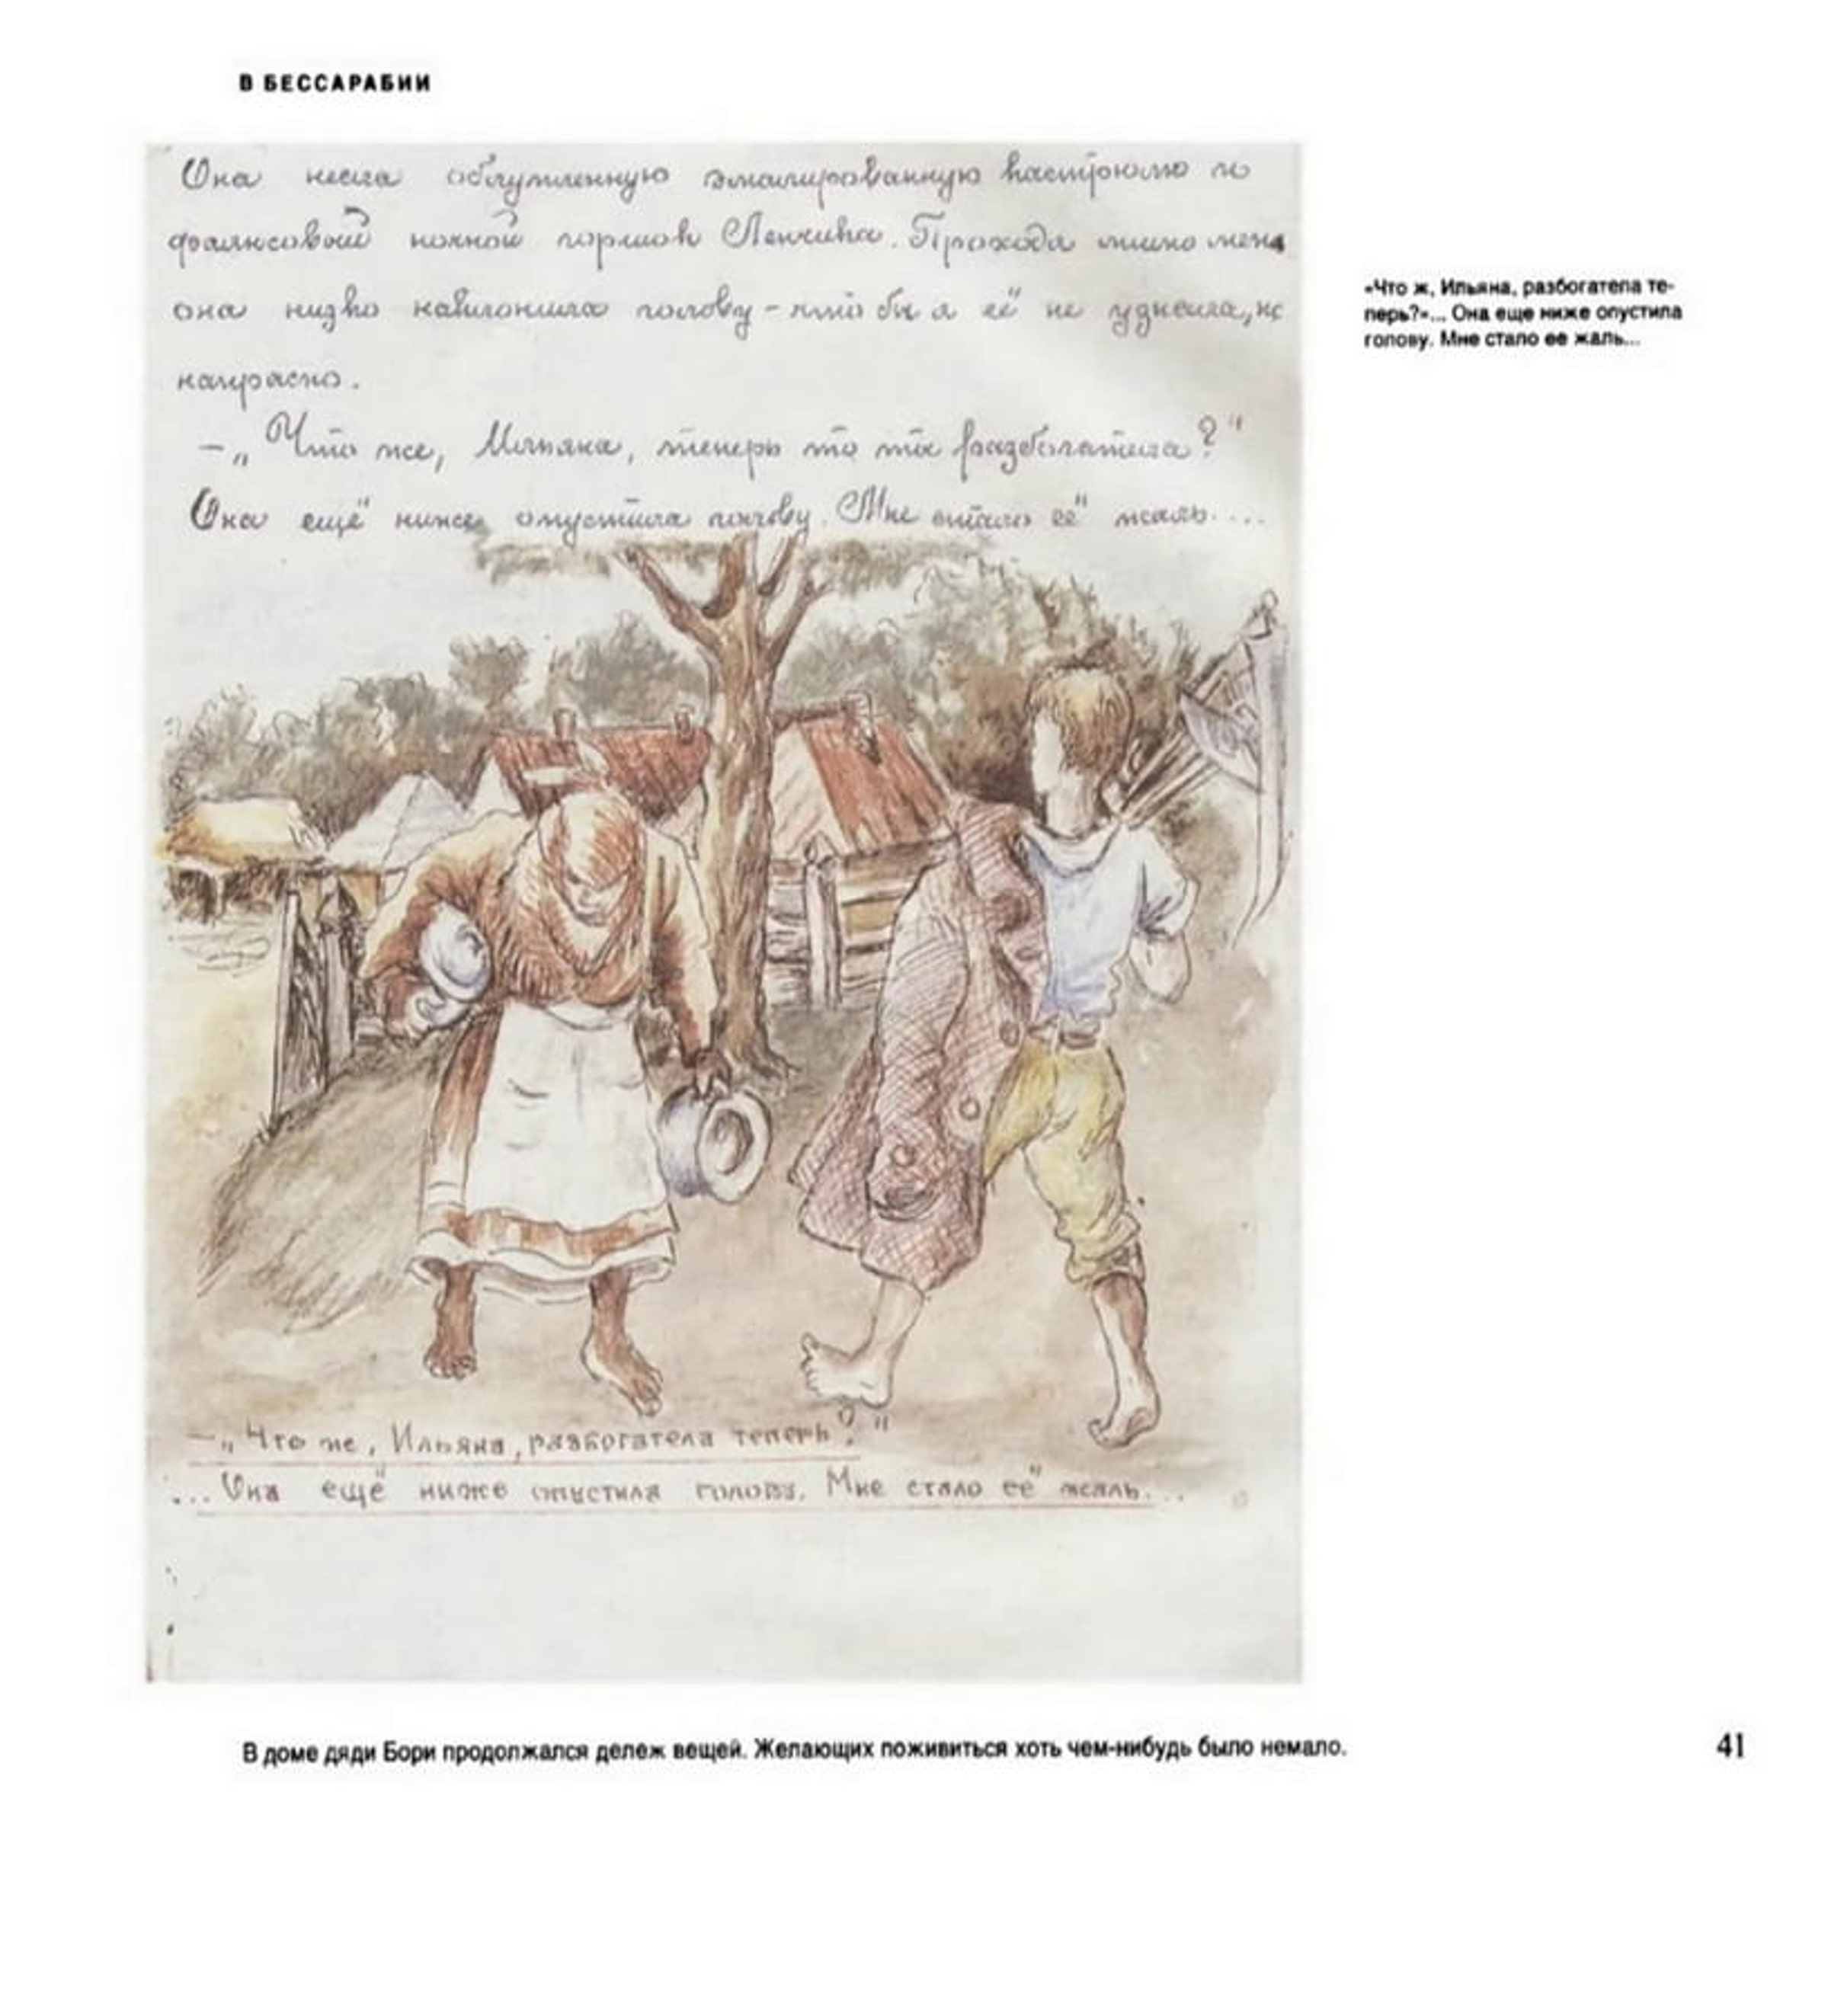 В БЕССАРАБИИ
Она несла облупленную эмалированную кастрюлю и
фаянсовый ночной горшок Ленчика. Проходя мимо меня
она низко наклонила голову – что бы я её не узнала, но
напрасно.
– „Что же, Ильяна, теперь то ты разбогатела?"
Она ещё ниже опустила голову. Мне стало её жаль....
«Что ж, Ильяна, разбогатела те-
перь?»... Она еще ниже опустила
голову. Мне стало ее жаль...
– „Что же, Ильяна, разбогатела теперь?"
... Она ещё ниже опустила голову. Мне стало её жаль...
В доме дяди Бори продолжался дележ вещей. Желающих поживиться хоть чем-нибудь было немало.
41